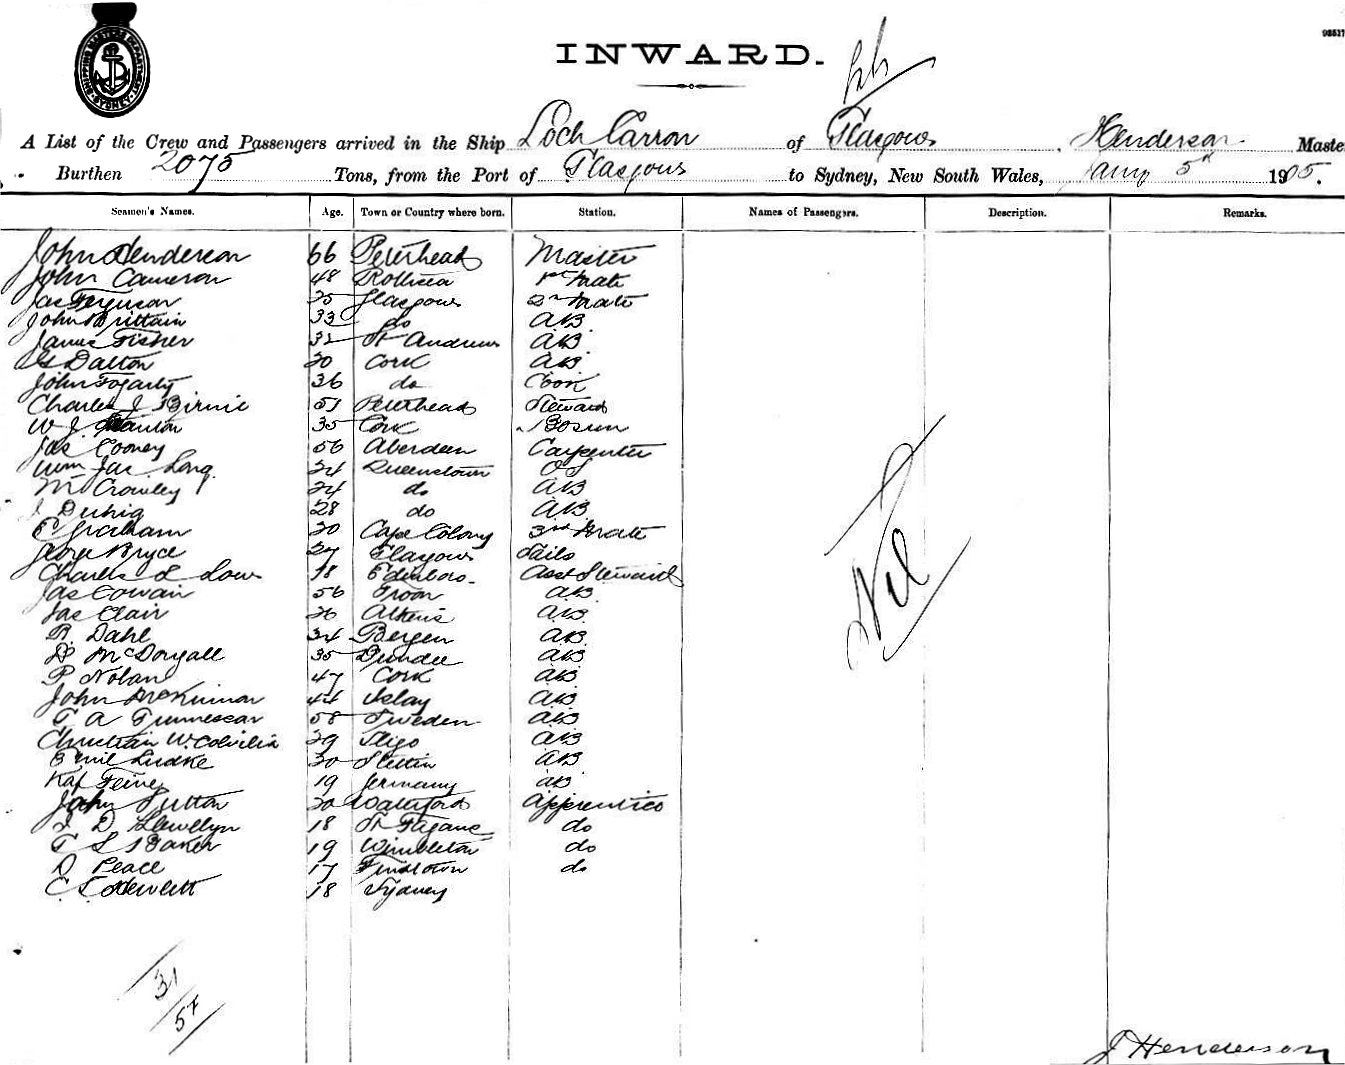 SHIPPING MASTER'S DEPARTMENT SYDNEY
INWARD.
A List of the Crew and Passengers arrived in the Ship Loch Carron of Glasgow, Henderson Maste
Burthen 2075 Tons, from the Port of Glasgow to Sydney, New South Wales, Jany 5th 1905.
Seamen's Names. Age. Town or Country where born. Station. Names of Passengers. Description. Remarks.
John Henderson 66 Peterhead Master
John Cameron 48 Rothesea 1st Mate
Jas Ferguson 25 Glasgow 2nd Mate
John Brittain 33 do AB
James Fisher 32 St Andrews AB
Dalton 20 Cork AB
John Fogarty 36 do Cook
Charles J Birnie 51 Peterhead Steward
W J 35 Cork Bosun
Jas Cooney 56 Aberdeen Carpenter
Wm Jas Long 24 Queenstown OS
M Crowley 24 do AB
J Duhig 28 do AB
E Graham 20 Cape Colony 3rd Mate
George Bryce 27 Glasgow Sails
Charles L Low 18 Edinboro Asst Steward
Jas Cowan 56 Troon AB
Jas Clair 26 Athens AB
R. Dahl 34 Bergen AB
D McDougall 35 Dundee AB
P Nolan 47 Cork AB
John McKinnon 44 Islay AB
T A 58 Sweden AB
Christian W. 29 Sligo AB
Emil Ludke 30 Stettin AB
Feine 19 Germany AB
John Sutton 20 Waterford Apprentice
D Llewellyn 18 St Fagans do
T S Baker 19 Wimbleton do
D Peace 17 Findtown do
C. L. Hewlett 18 Sydney
Nil
31
57
J Henderson